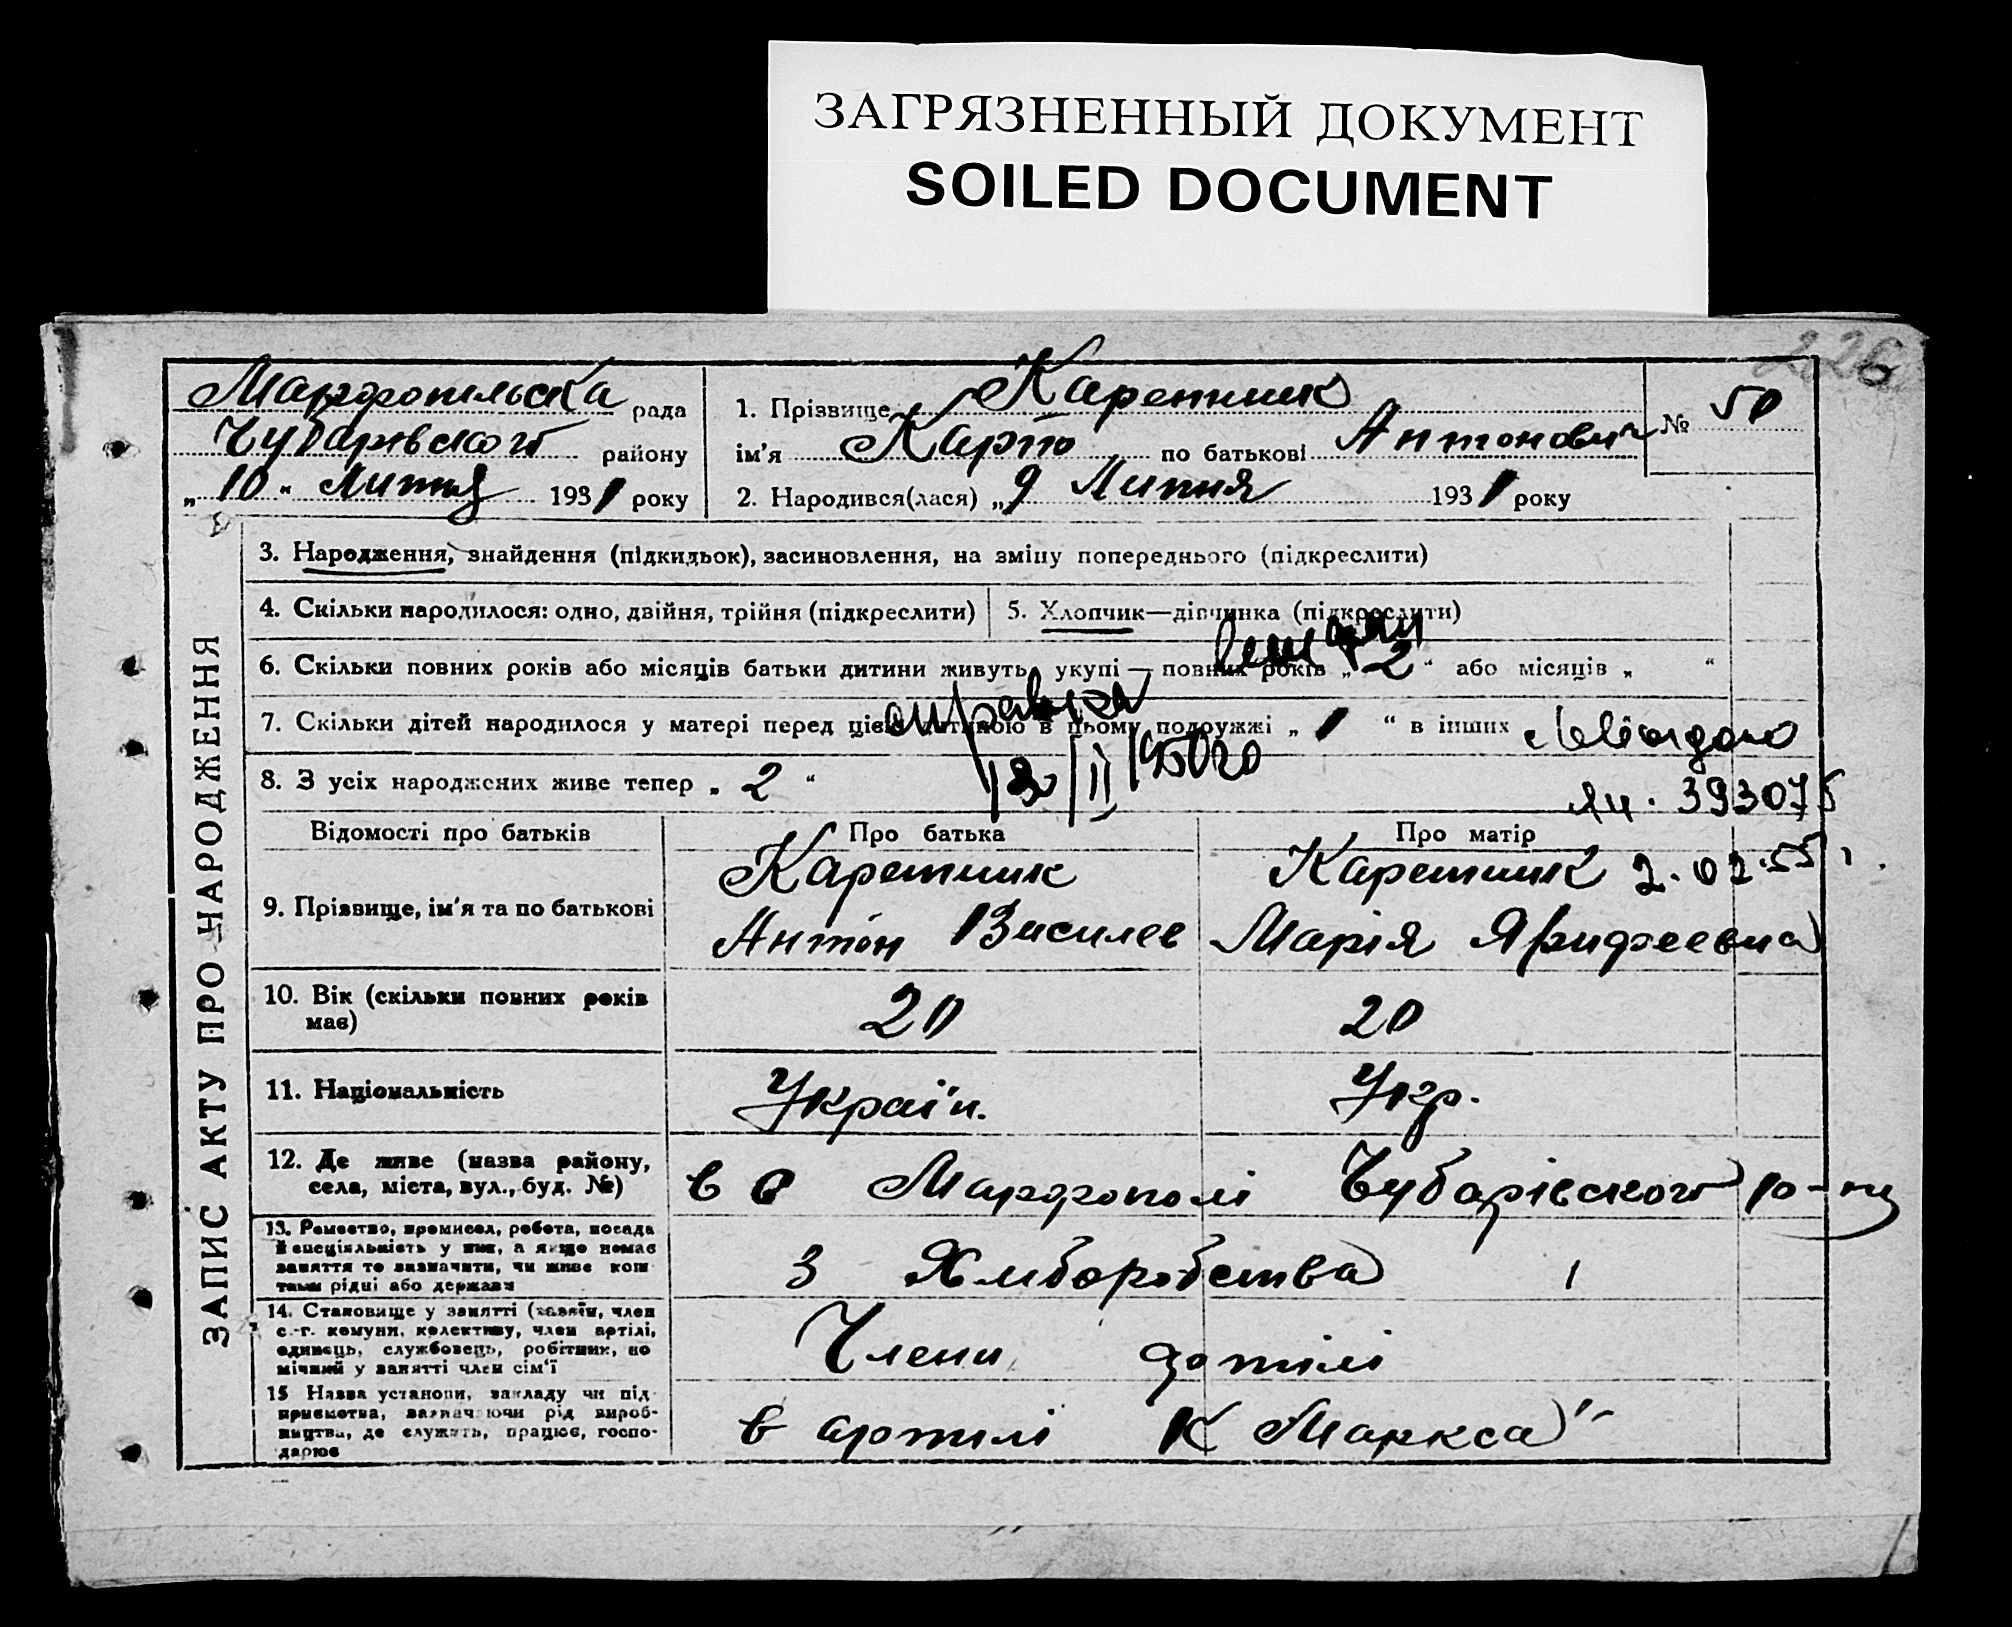 ЗАГРЯЗНЕННЫЙ ДОКУМЕНТ
SOILED DOCUMENT
226
Марфопільска рада
Чубарівского району
„10“ Липня 1931 року
1. Прізвище Каретник
ім'я по батькові Антонович
№ 50
2. Народився(лася) „9 Липня 1931 року
ЗАПИС АКТУ ПРО НАРОДЖЕННЯ
3. Народження, знайдення (підкидьок), засиновлення, на зміну попереднього (підкреслити)
4. Скільки народилося: одно, двійня, трійня (підкреслити)
5. Хлопчик—дівчинка (підкреслити)
6. Скільки повних років або місяців батьки дитини живуть укупі — повних років „2“ або місяців „ “
7. Скільки дітей народилося у матері перед цією дитиною в цьому подружжі „1“ в інших
справка
12/II 1950го
Видано
8. З усіх народжених живе тепер „2“
ян. 393075
2.02.55
Відомості про батьків
Про батька
Про матір
9. Прізвище, ім'я та по батькові
Каретник
Антон Василев
Каретник
Марія
10. Вік (скільки повних років має)
20
20
11. Національність
Україн.
Укр.
12. Де живе (назва району, села, міста, вул., буд. №)
в с Марфополі Чубарівского р-ну
13. Ремество, промисел, робота, посада й спеціяльність у них, а якщо немає заняття то зазначити, чи живе коштами рідні або держави
З Хліборобства
14. Становище у занятті (хазяїн, член с.-г. комуни, колективу, член артілі, одинець, службовець, робітник, помічний у занятті член сім'ї
Члени артілі
15 Назва установи, закладу чи підприємства, зазначаючи рід виробництва, де служить, працює, господарює
в артілі К Маркса"